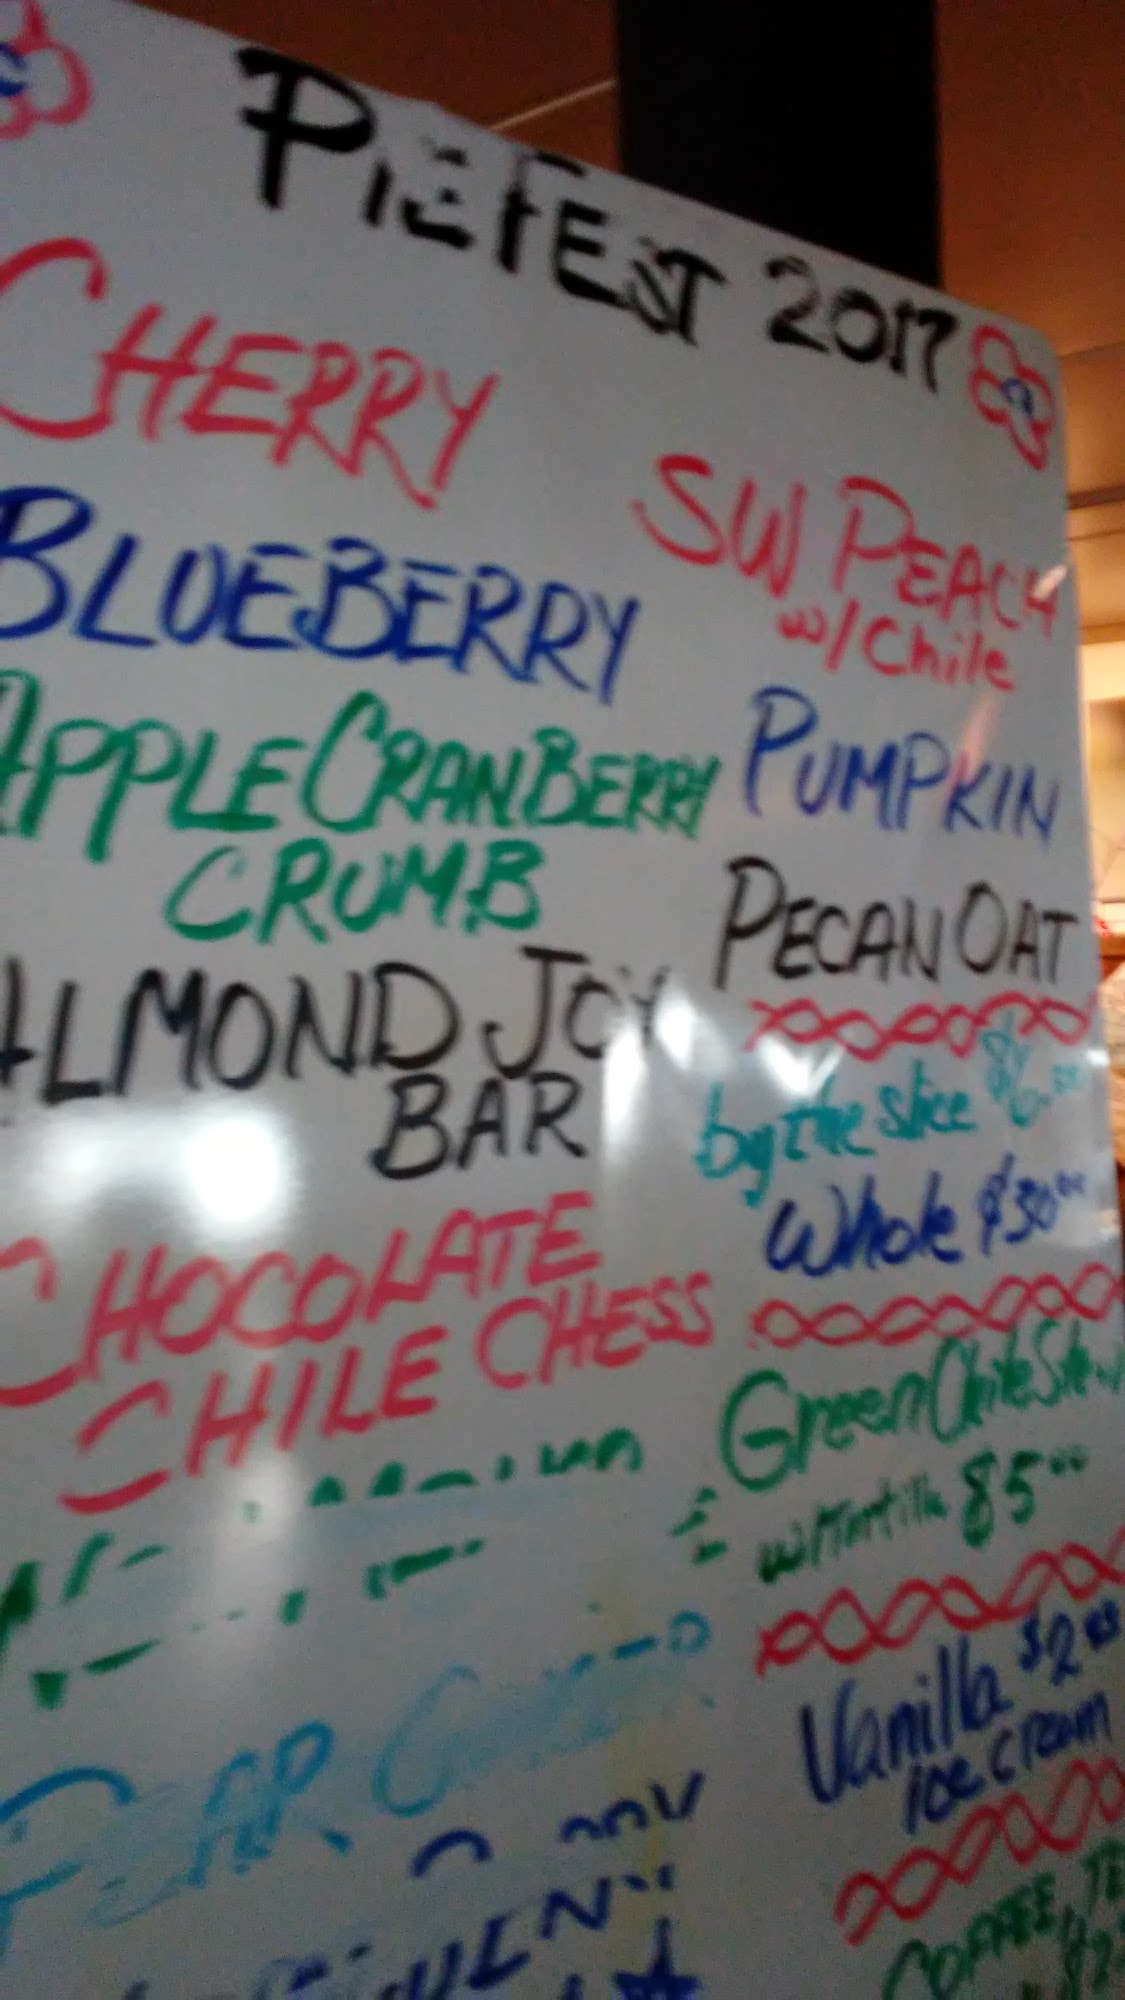 PIEFEST 2017
CHERRY
BLUEBERRY
APPLE CRANBERRY
CRUMB
ALMOND JOY
BAR
CHOCOLATE
CHILE CHESS
PEAR
SW PEACH
w/Chile
PUMPKIN
PECAN OAT
by the slice $6.00
Whole $30.00
Green Chile Stew
w/Tortilla $5.00
Vanilla $2.00
ice cream
COFFEE,